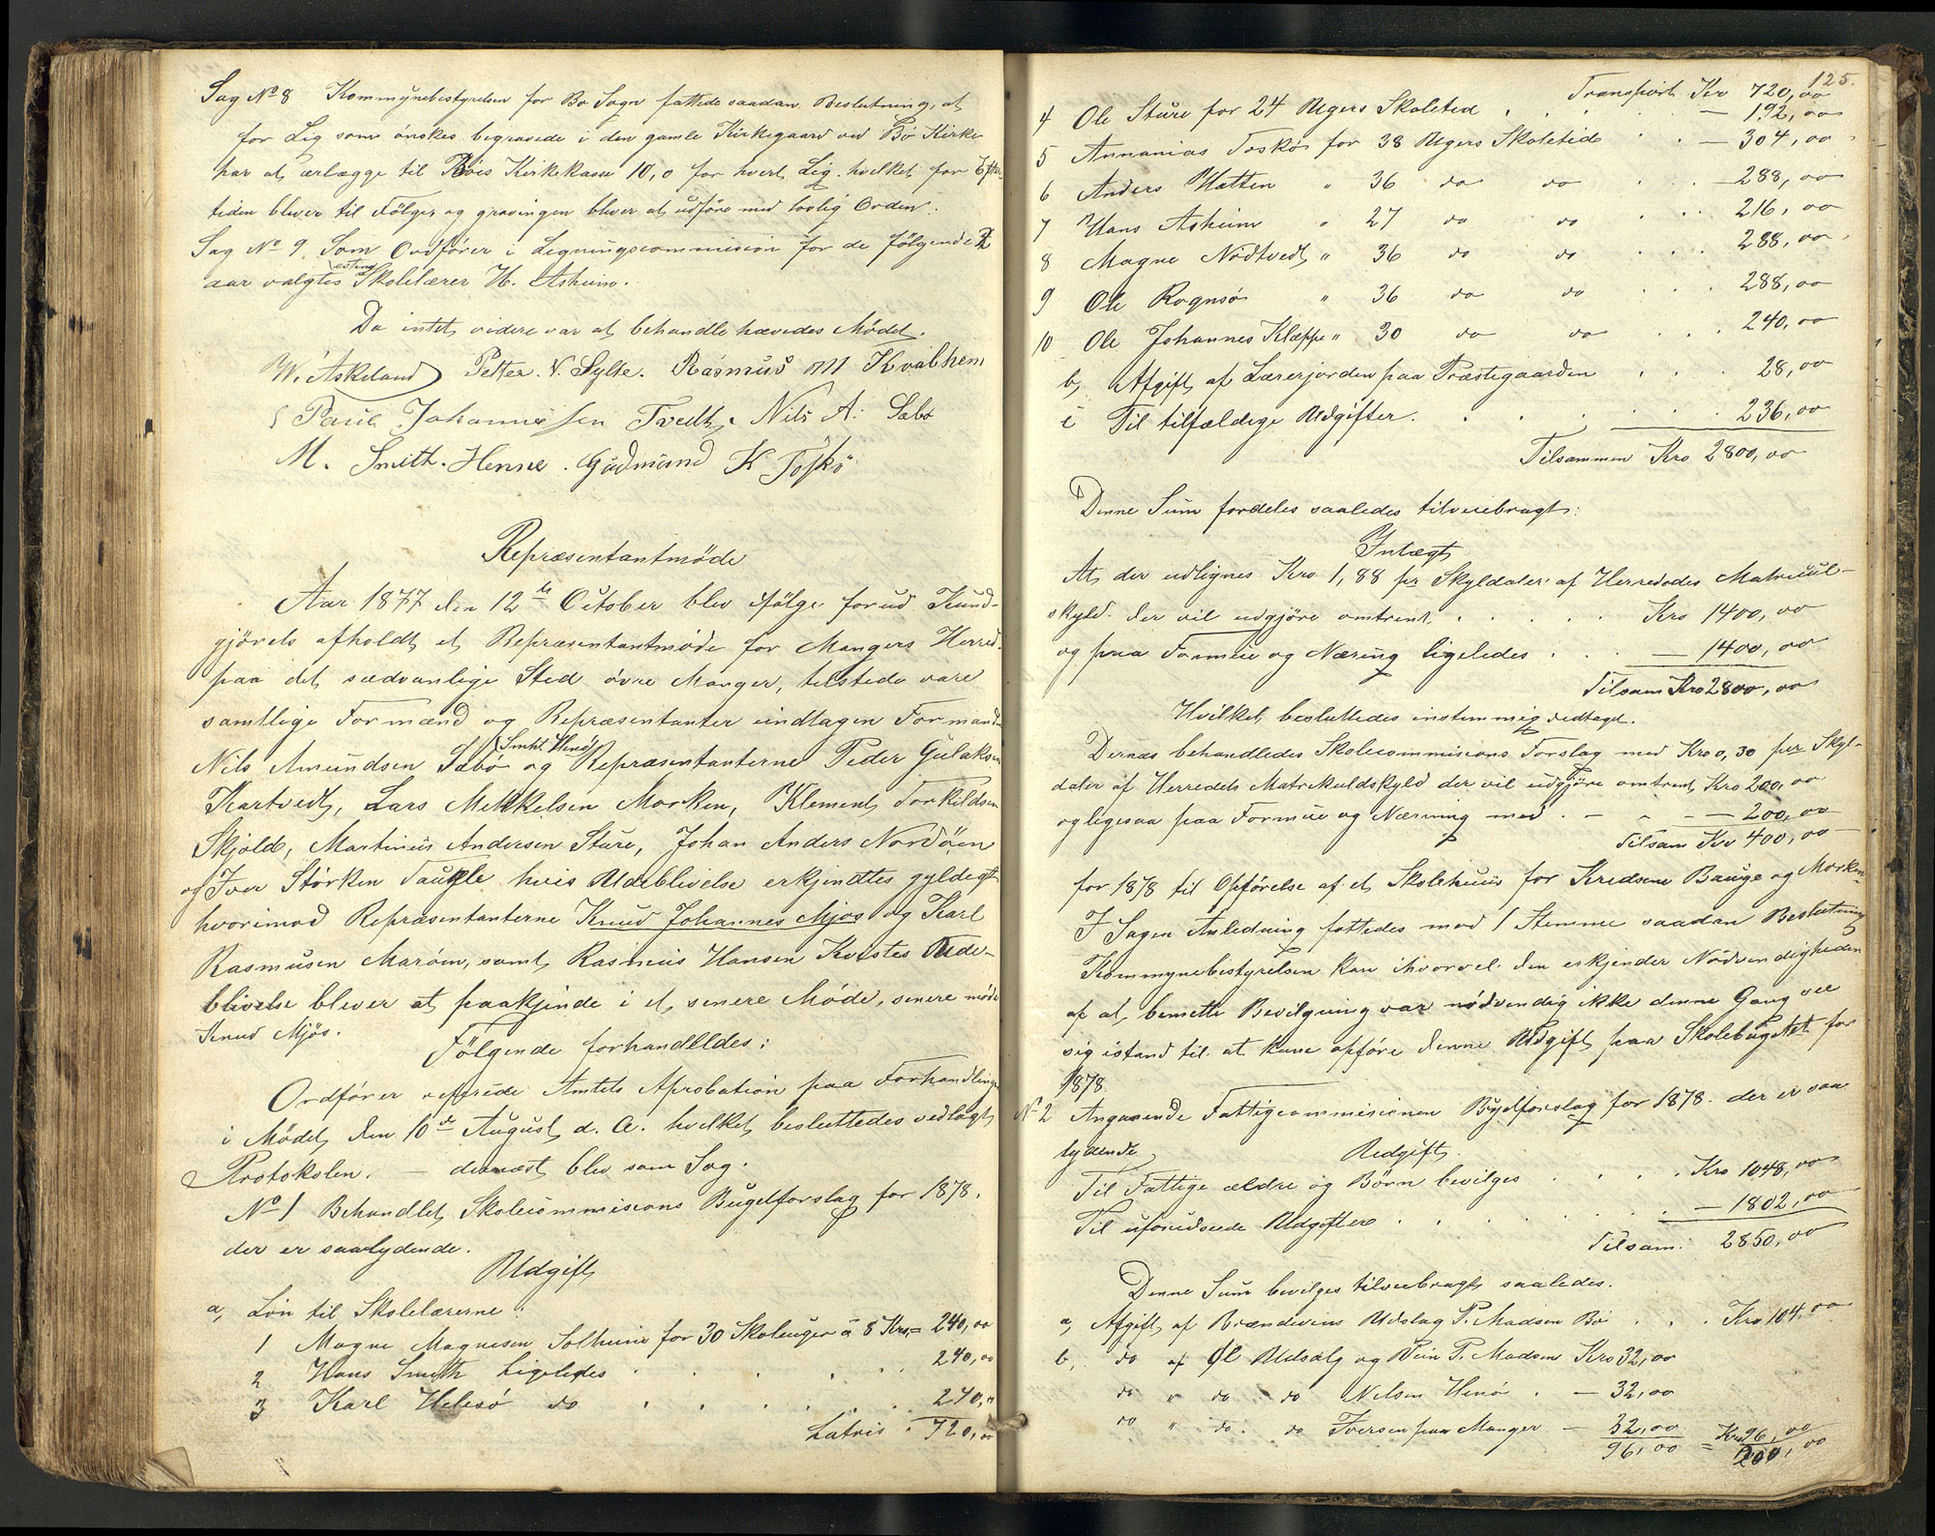 Sag No 8 Kommunebestyrelsen for Bø Sogn fattede saadan Beslutning, at
for Lig som ønskes begravede i den gamle Kirkegaard ved Bø Kirke
har at erlægge til Bøes Kirkekasse 10,0 for hvert Lig. hvilket for Efter-
tiden bliver til Følge, og gravingen bliver at udføre med lovlig Orden.
Sag No 9. Som Ordfører i Ligningscommission for de følgende 2
aar valgtes Skolelærer H. Asheim.
Da intet videre var at behandle hævedes Mødet.
W. Askeland Petter. N. Sylte. Rasmus M Kvalhem
Paul Johannessen Tvedt, Nils A: Sæbø
M. Smith. Henne. Gudmund K Toskø
Repræsentantmøde
Aar 1877 den 12te October blev ifølge forud Kund-
gjørels afholdt et Repræsentantmøde for Mangers Herred.
paa det sædvanlige Sted øvre Manger, tilstede vare
samtlige Formænd og Repræsentanter undtagen Formand
Smht. Henø
Nils Amundsen Sæbø og Repræsentanterne Peder Gulaksen
Kartvedt, Lars Mikkelsen Morken, Klement Torkildsen
Skjold, Martinus Andersen Sture, Johan Anders Nordøen
og Iver Størksen Taugle hvis Udeblivelse erkjendtes gyldigt
hvorimod Repræsentanterne Knud Johannes Mjøs og Karl
Rasmusen Marøen, samt Rasmus Hansen Kvistes Ude-
blivelse blever at paakjende i et senere Møde, senere mødte
Knud Mjøs.
Følgende forhandledes:
Ordfører Amtets Aprobation paa Forhandlinge
i Mødet den 10de August d. A. hvilket besluttedes vedlagt
Protokolen. — dernæst blev som Sag.
No 1 Behandlet Skolecommisions Bugetforslag for 1878.
der er saalydende.
Udgift
a, Løn til Skolelærerne:
1 Magne Magnesen Solheim for 30 Skoleuger á 8 Kr. = 240,00
2 Hans Smith Ligeledes 240,00
3 Karl Helesø do 240,"
Latris 720,00
125.
Transport Kr 720,00
4 Ole Sture for 24 Ugers Skoletid — 192,00
5 Annanias Toskø for 38 Ugers Skoletid — 304,00
6 Anders Hatten " 36 do do — 288,00
7 Hans Asheim " 27 do do 216,00
8 Magne Nødtvedt " 36 do do 288,00
9 Ole Rognsø " 36 do do 288,00
10 Ole Johannes Klæppe " 30 do do 240,00
b, Afgift af Lærerjorden paa Præstegaarden 28,00
c Til tilfældige Udgifter. 236,00
Tilsammen Kro 2800,00
Denne Sum fordeles saaledes tilveiebragt:
Intægt
At der udlignes Kro 1,88 pr Skyldaler af Herredets Matricul-
skyld. der vil udgjøre omtrent Kro 1400,00
og paa Formue og Næring ligeledes — 1400,00
Tilsam Kro 2800,00
Hvilket besluttedes instemmig vedtagt.
Dernæs behandledes Skolecommisions Forslag med Kro 0,30 per Skyl-
daler af Herredets Matrikulskyld der vil udgjøre omtrent Kro 200,00
og ligesaa paa Formue og Næring med — 200,00
Tilsam Kr 400,00
for 1878 til Opførelse af et Skolehuus for Kredsene Bauge og Morken.
I Sagen Anledning fattedes mod 1 Stemme saadan Beslutning
Kommunebestyrelsen kan ihvorvel den erkjender Nødvendigheden
af at bemelte Bevilgning var nødvendig ikke denne Gang see
sig istand til at kune opføre denne Udgift paa Skolebugetet for
1878
No 2 Angaaende Fattigcommisionen Bydforslag for 1878. der er saa
lydende
Udgift.
Til Fattige ældre og Børn bevilges Kro 1048,00
Til uforudseede Udgifter — 1802,00
Tilsam: 2850,00
Denne Sum bevilges tilveiebragt saaledes.
a, Afgift af Brændevins Udslag P. Madsen Bø Kro 104,00
b, do af Øl Udsalg og Vin P. Madsen Kro 32,00
do " do do Nilsen Henø — 32,00
do " do. do Iversen paa Manger — 32,00
96,00 = Kro 96,00
200,00